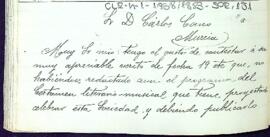 Sr D. Carlos Cano
Murcia
Muy Sr mio: tengo el gusto de contestar á su
muy apreciable escrito de fecha 19 del que, no
habiendose redactado aun el programa del
Certamen literario musical que tiene proyectado
celebrar esta Sociedad, y debiendo publicarlo